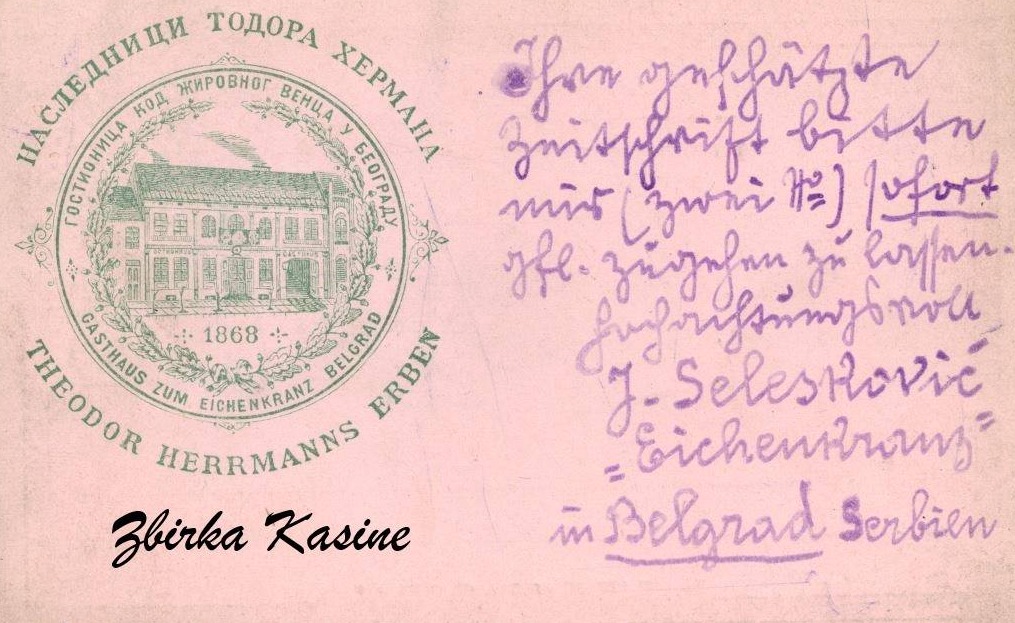 НАСЛЕДНИЦИ ТОДОРА ХЕРМАНА
ГОСТИОНИЦА КОД ЖИРОВНОГ ВЕНЦА У БЕОГРАДУ
1868
GASTHAUS ZUM EICHENKRANZ BELGRAD
THEODOR HERRMANNS ERBEN
Zbirka Kasine
Ihre geschätzte
Zeitschrift bitte
mir (zwei No) sofort
gfl. zugehen zu lassen.
Hochachtungsvoll
J. Selesković
"Eichenkranz"
in Belgrad Serbien